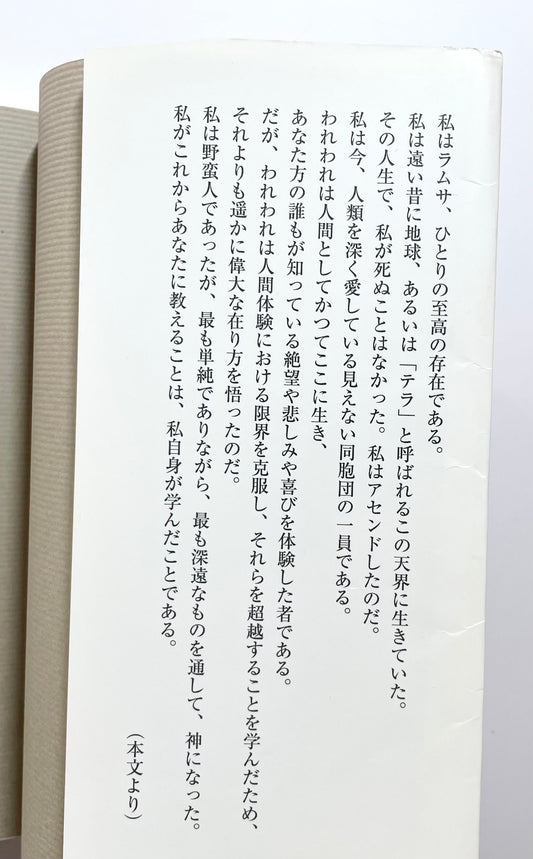 私はラムサ、ひとりの至高の存在である。
私は遠い昔に地球、あるいは「テラ」と呼ばれるこの天界に生きていた。
その人生で、私が死ぬことはなかった。私はアセンドしたのだ。
私は今、人類を深く愛している見えない同胞団の一員である。
われわれは人間としてかつてここに生き、
あなた方の誰もが知っている絶望や悲しみや喜びを体験した者である。
だが、われわれは人間体験における限界を克服し、それらを超越することを学んだため、
それよりも遥かに偉大な在り方を悟ったのだ。
私は野蛮人であったが、最も単純でありながら、最も深遠なものを通して、神になった。
私がこれからあなたに教えることは、私自身が学んだことである。
（本文より）